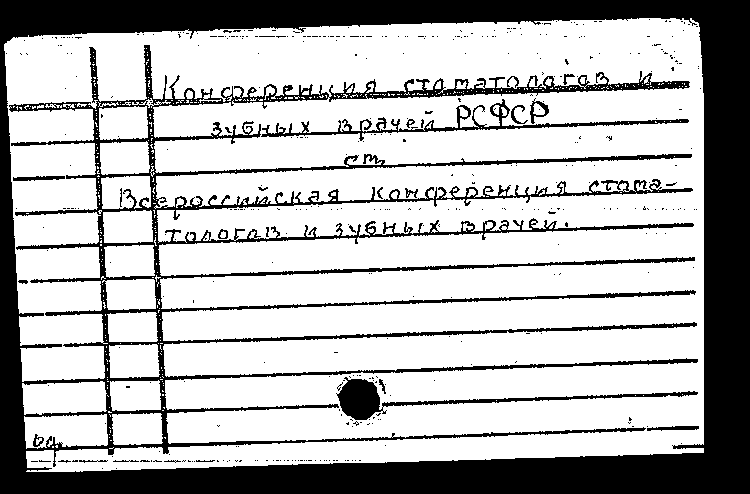 Конференция стоматологов и
зубных врачей РСФСР
см.
Всероссийская конференция стома-
тологов и зубных врачей.